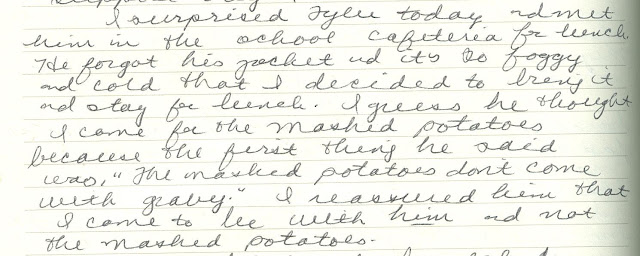 I surprised Tyler today nd met
him in the school cafeteria for lunch.
He forgot his jacket nd it's so foggy
nd cold that I decided to bring it
nd stay for lunch. I guess he thought
I came for the mashed potatoes
because the first thing he said
was, "The mashed potatoes don't come
with gravy." I reassured him that
I came to be with him nd not
the mashed potatoes.